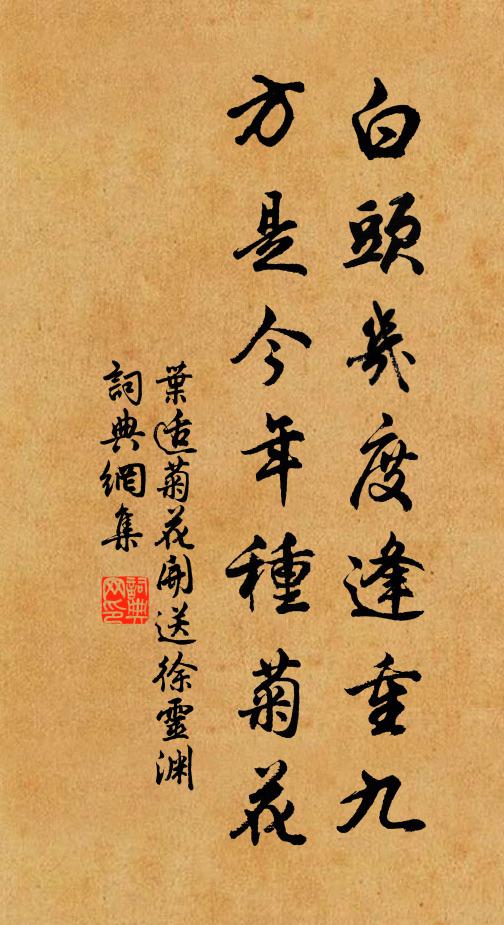 白頭幾度逢重九
方是今年種菊花
葉适菊花開送徐靈淵
詞典網集
詞典網印